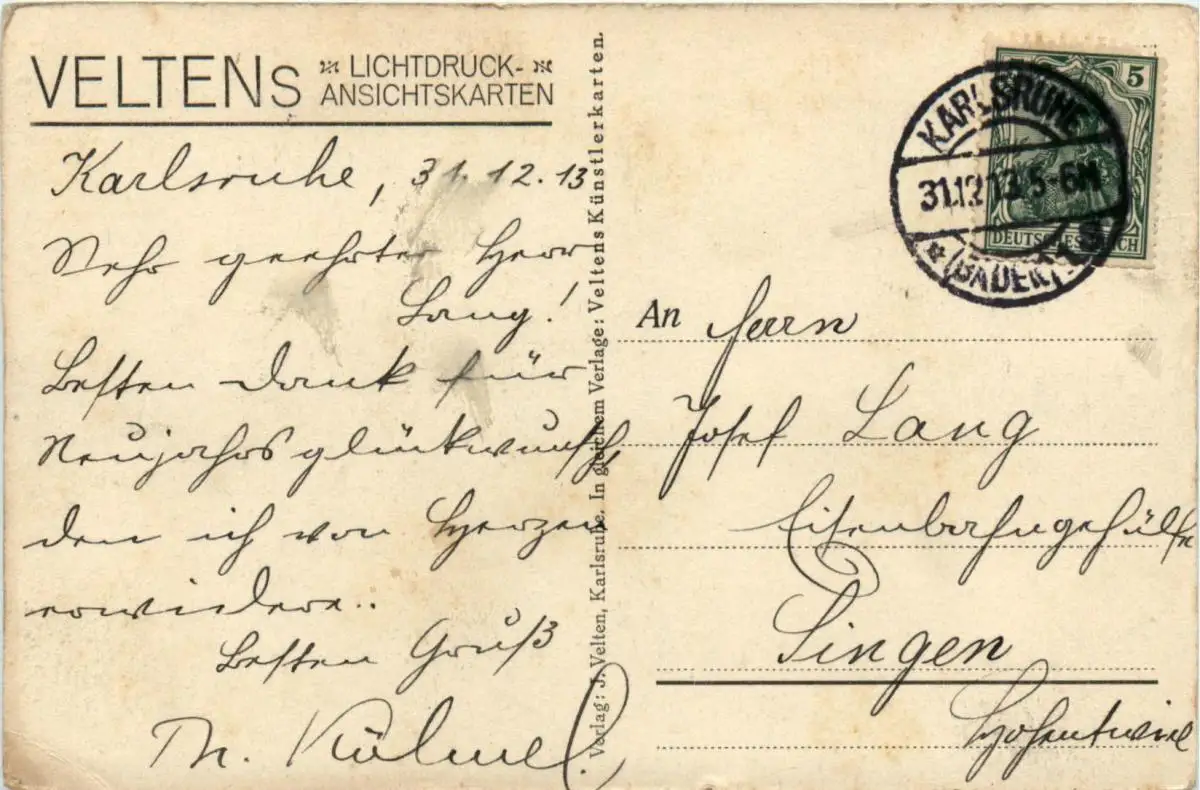 VELTENs LICHTDRUCK-
ANSICHTSKARTEN
Karlsruhe, 31.12.13
Sehr geehrter Herr
Lang!
Besten Dank für
Neujahrsglückwunsch,
den ich von Herzen
erwidere..
Besten Gruß
Th.
Verlag: J. Velten, Karlsruhe. In gleichem Verlage: Veltens Künstlerkarten.
5
DEUTSCHES REICH
KARLSRUHE
31.12.13. 5-6N
* (BADEN) 1 S
An Herrn
Josef Lang
Eisenbahngehülfe
Singen
Hohentwiel